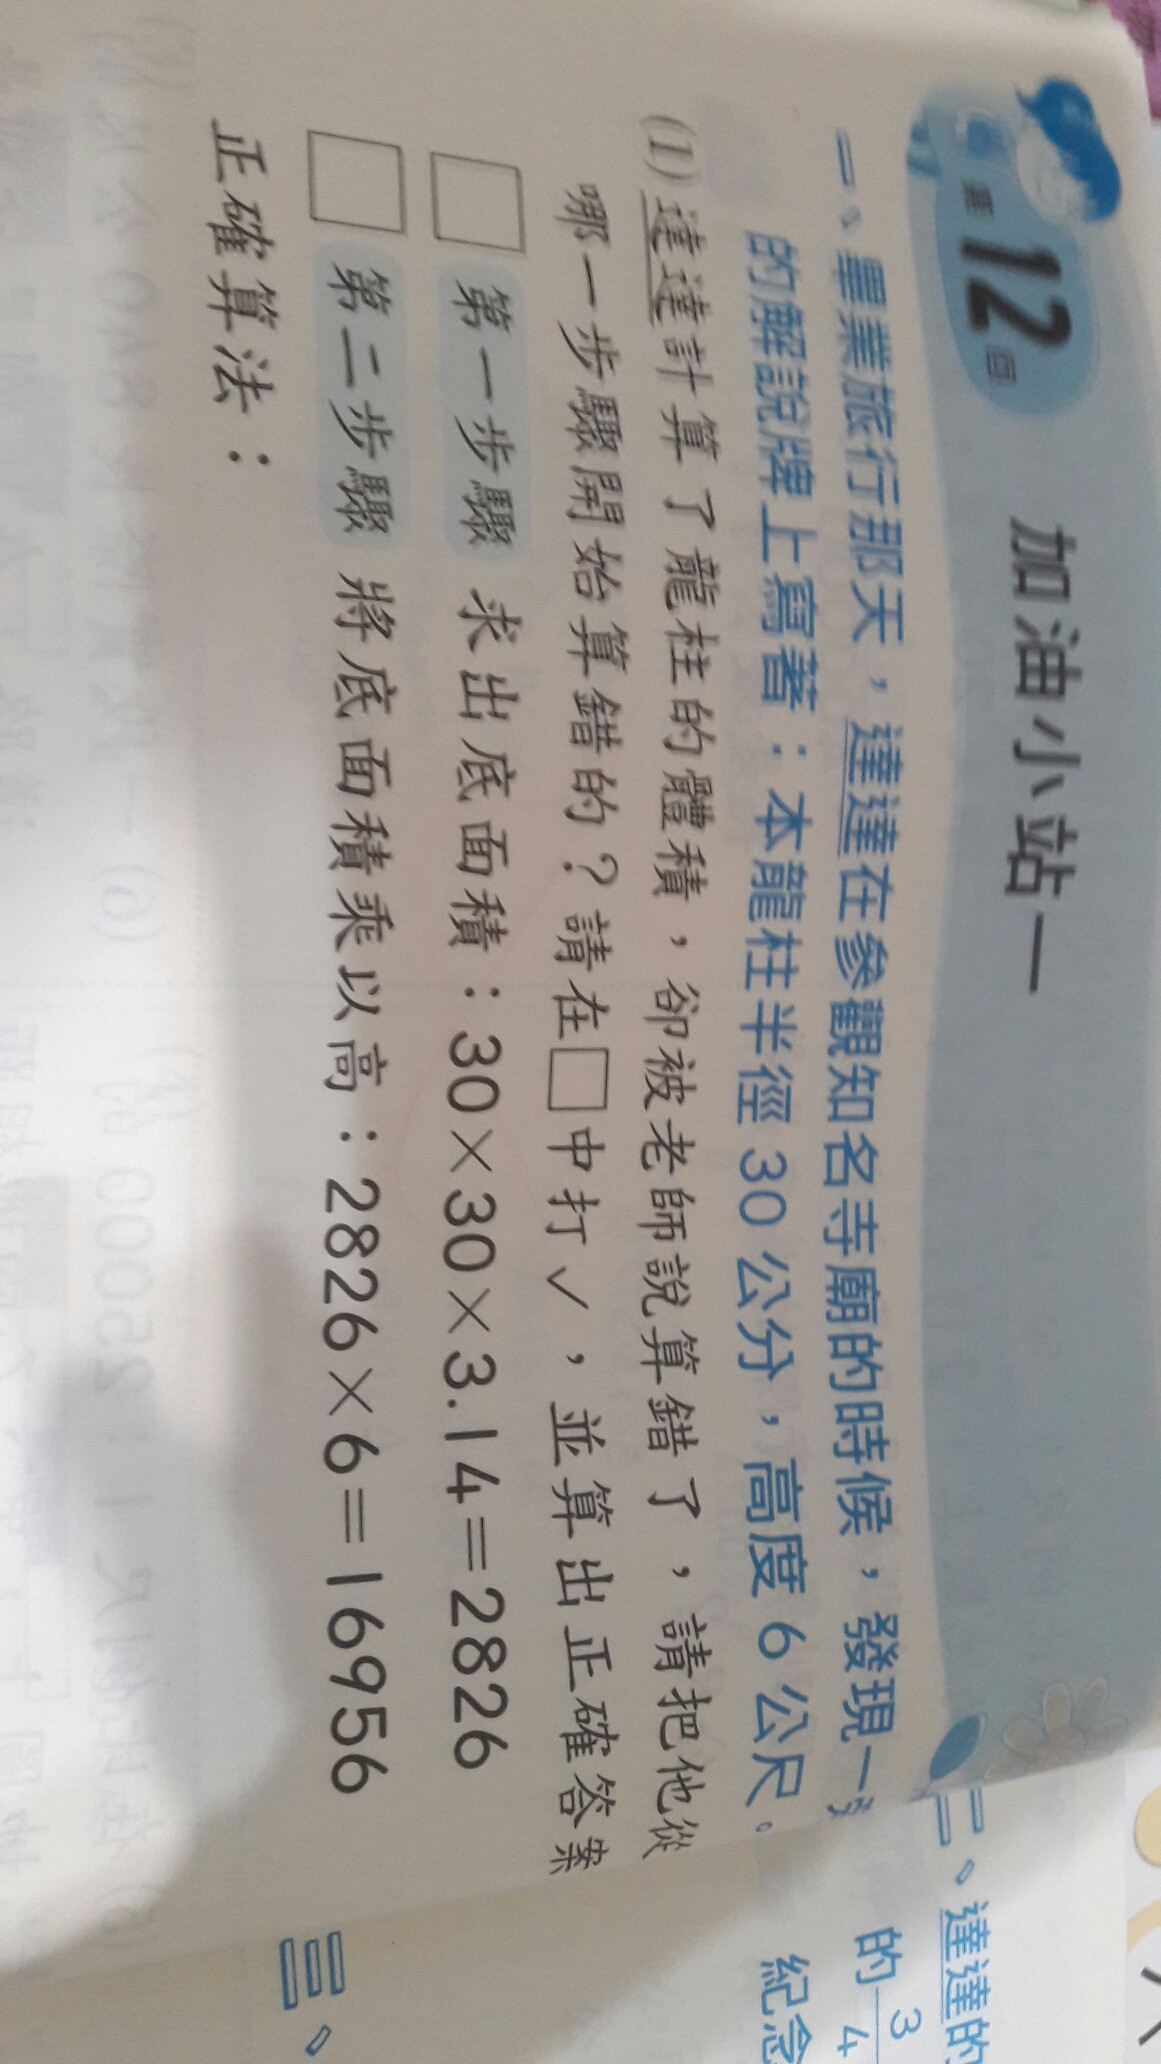 第12回
加油小站一
一、畢業旅行那天，達達在參觀知名寺廟的時候，發現一
的解說牌上寫著：本龍柱半徑30公分，高度6公尺。
(1)達達計算了龍柱的體積，卻被老師說算錯了，請把他從
哪一步驟開始算錯的？請在□中打✓，並算出正確答案
□ 第一步驟 求出底面積：30×30×3.14＝2826
□ 第二步驟 將底面積乘以高：2826×6＝16956
正確算法：
二、達達的
的3/4
紀念
三、